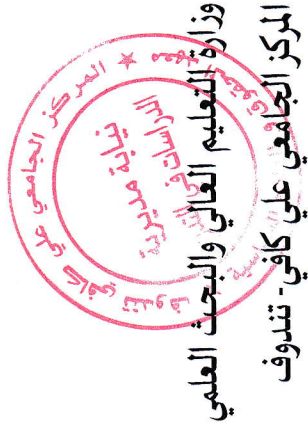 وزارة التعليم العالي والبحث العلمي
المركز الجامعي علي كافي - تندوف
المركز الجامعي علي كافي تندوف
نيابة مديرية
الدراسات في